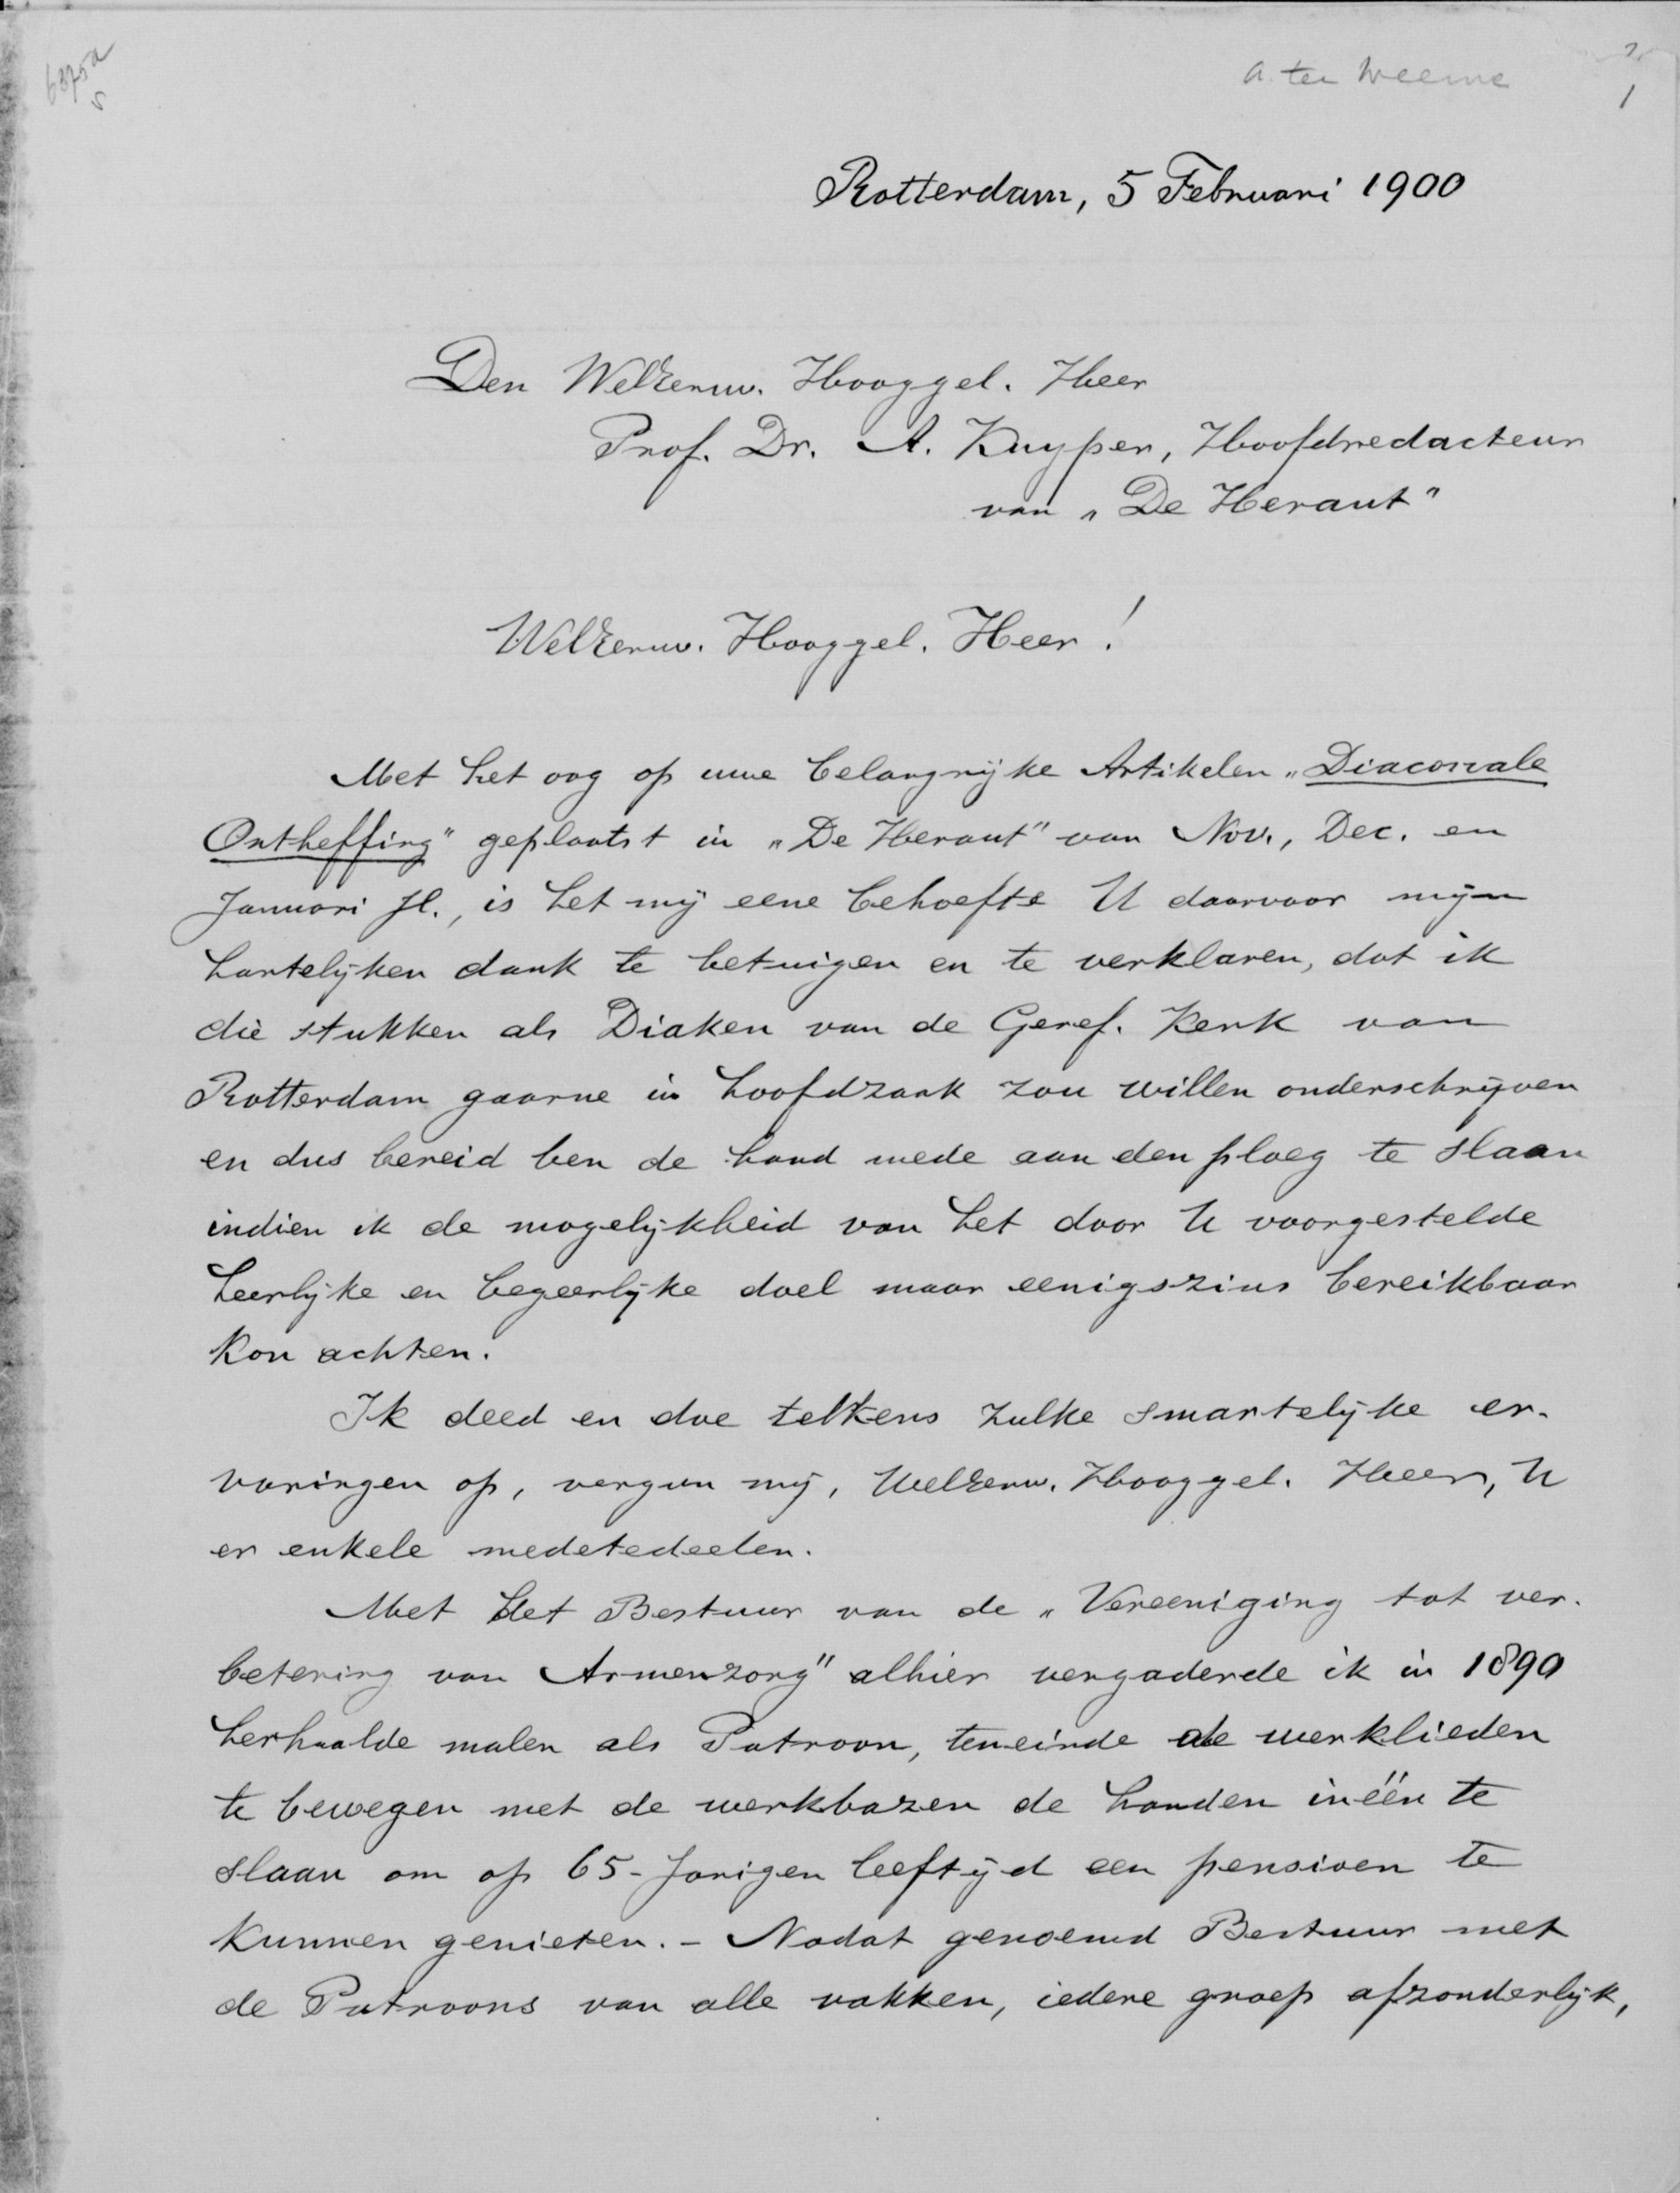 6875a
5
A. ter Weeme
1
Rotterdam, 5 Februari 1900
Den WelEerw. Hooggel. Heer
Prof. Dr. A. Kuyper, Hoofdredacteur
van „De Heraut"
WelEerw. Hooggel. Heer!
Met het oog op uwe belangrijke Artikelen „Diaconale
Ontheffing" geplaatst in „De Heraut" van Nov., Dec. en
Januari jl., is het mij eene behoefte U daarvoor mijn
hartelijken dank te betuigen en te verklaren, dat ik
die stukken als Diaken van de Geref. Kerk van
Rotterdam gaarne in hoofdzaak zou willen onderschrijven
en dus bereid ben de hand mede aan den ploeg te slaan
indien ik de mogelijkheid van het door U voorgestelde
heerlijke en begeerlijke doel maar eenigszins bereikbaar
kon achten.
Ik deed en doe telkens zulke smartelijke er-
varingen op, vergun mij, WelEerw. Hooggel. Heer, U
er enkele medetedeelen.
Met het Bestuur van de „Vereeniging tot ver-
betering van Armenzorg" alhier vergaderde ik in 1890
herhaalde malen als Patroon, teneinde de werklieden
te bewegen met de werkbazen de handen inéén te
slaan om op 65-jarigen leeftijd een pensioen te
kunnen genieten. – Nadat genoemd Bestuur met
de Patroons van alle vakken, iedere groep afzonderlijk,